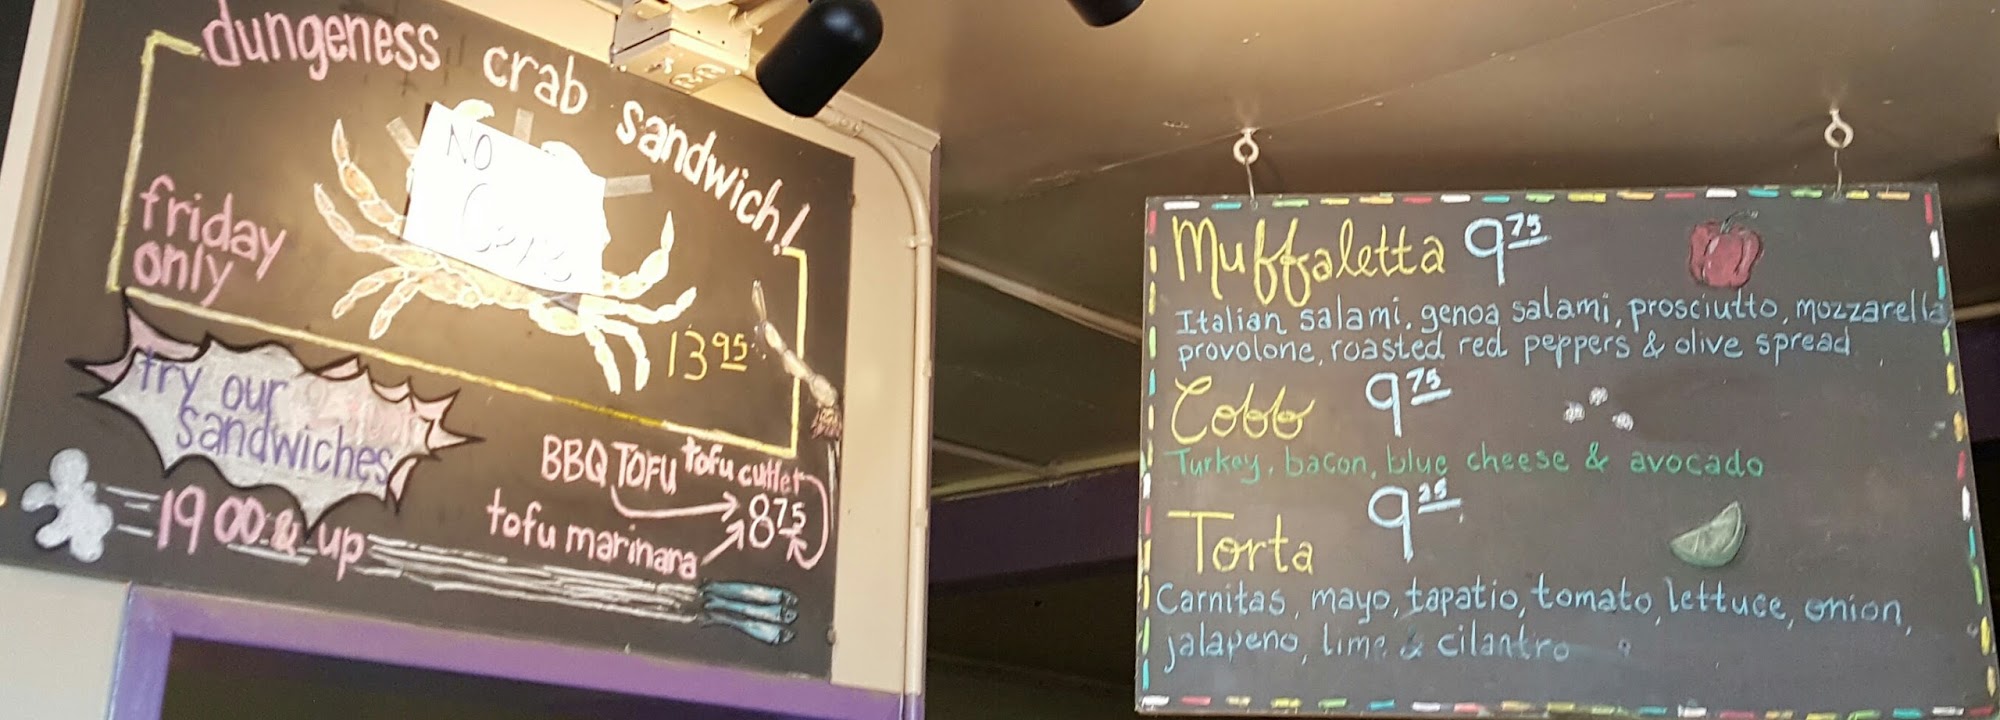 dungeness crab sandwich!
NO
friday
only
13 95
try our
sandwiches
19 00 & up
BBQ TOFU tofu cutlet
tofu marinara 8 75
Muffaletta 9 75
Italian salami, genoa salami, prosciutto, mozzarella
provolone, roasted red peppers & olive spread
Cobb 9 75
Turkey, bacon, blue cheese & avocado
Torta 9 25
Carnitas, mayo, tapatio, tomato, lettuce, onion,
jalapeno, lime & cilantro